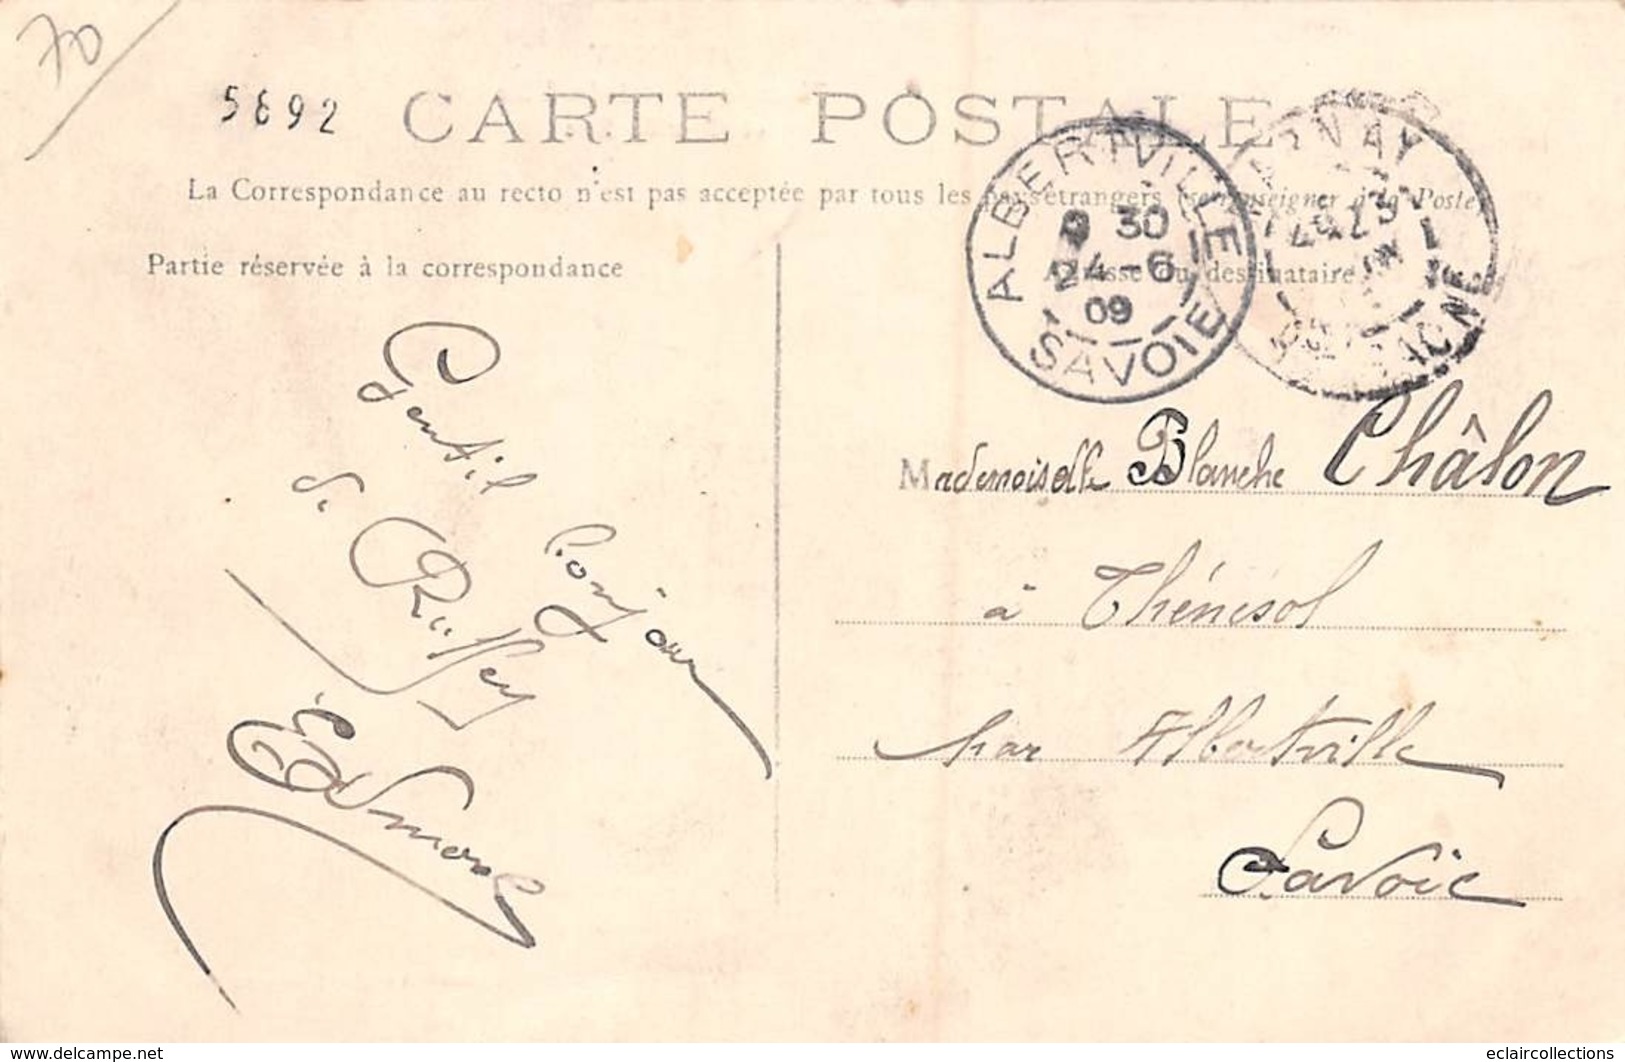 70
5892
CARTE POSTALE
La Correspondance au recto n'est pas acceptée par tous les pays étrangers (se renseigner à la Poste)
Partie réservée à la correspondance
Adresse du destinataire
ALBERTVILLE
9 30
24-6
09
SAVOIE
Gentil bonjour
de Ruffey
Edmond
Mademoiselle Blanche Châlon
à Thénésol
par Albertville
Savoie
www.delcampe.net
eclaircollections